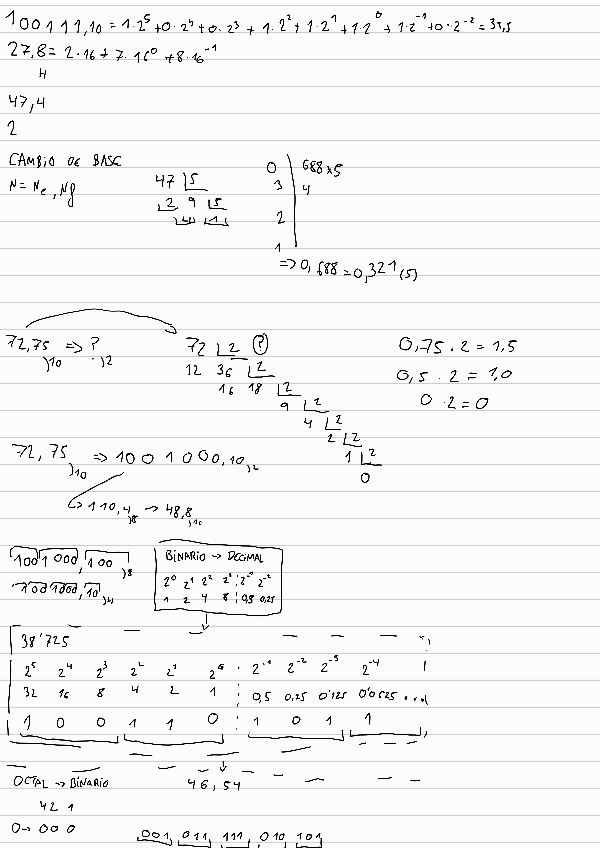 100111,10 = 1·2^5+0·2^4+0·2^3+1·2^2+1·2^1+1·2^0+1·2^-1+0·2^-2=39,5
27,8= 2·16+7·16^0+8·16^-1
H
47,4
2
CAMBIO DE BASE
N= Ne, Nf
47 5
2 9 5
4 1
0 688x5
3 4
2
1
=> 0,688=0,321(5)
72,75)10 => ?)2
72 2 ?
12 36 2
16 18 2
9 2
4 2
2 2
1 2
0
0,75·2=1,5
0,5·2=1,0
0·2=0
72,75)10 => 1001000,10)2
-> 110,4)8 -> 48,8)16
1001000,100)8
1001000,10)4
BINARIO -> DECIMAL
2^0 2^1 2^2 2^3 2^-1 2^-2
1 2 4 8 0,5 0,25
38'725
2^5 2^4 2^3 2^2 2^1 2^0 2^-1 2^-2 2^-3 2^-4
32 16 8 4 2 1 0,5 0,25 0'125 0'0625 ...
1 0 0 1 1 0 1 0 1 1
46,54
OCTAL -> BINARIO
42 1
0-> 00 0
001, 011, 111, 010 101